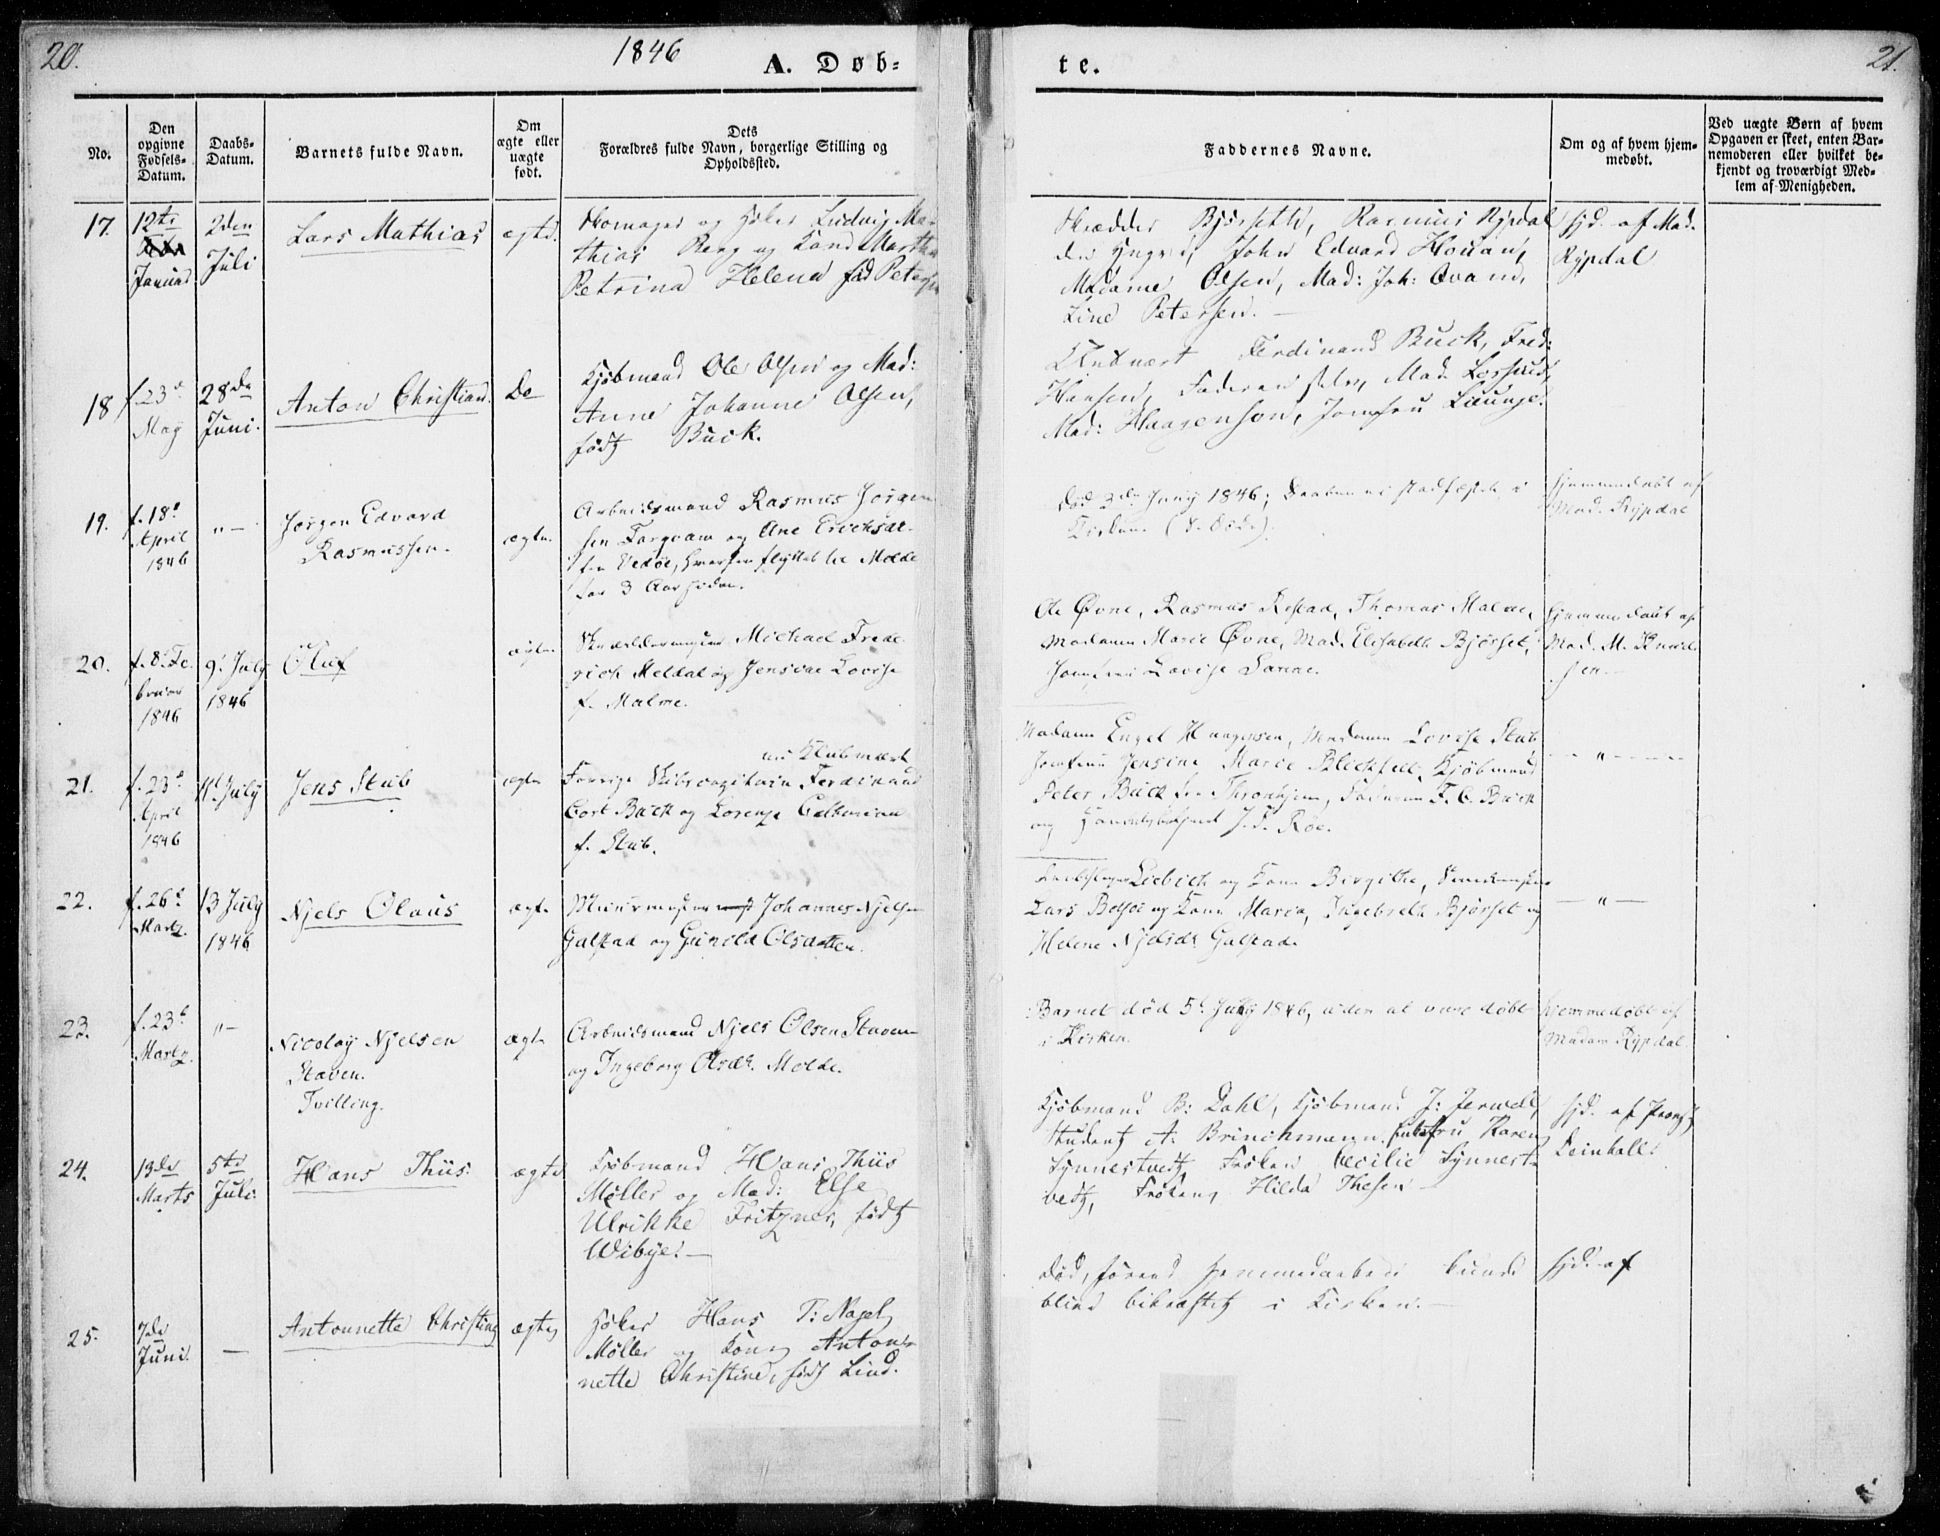 20.
1846
A. Døb-
te.
21.
No.
Den
opgivne
Fødsels-
Datum.
Daabs-
Datum.
Barnets fulde Navn.
Om
ægte eller
uægte
født.
Dets
Forældres fulde Navn, borgerlige Stilling og
Opholdssted.
Faddernes Navne.
Om og af hvem hjem-
medøbt.
Ved uægte Børn af hvem
Opgaven er skeet, enten Bar-
nemoderen eller hvilket be-
kjendt og troværdigt Med-
lem af Menigheden.
17.
12te
Januar
2den
Juli
Lars Mathias
ægte.
Skomager og Høker Ludvig Ma-
thias Berg og Kone Marthe
Petrina Helena fød Petersen
Skrædder Bjørseth, Rasmus Rypdal
John Edvard Houan,
Madame Olsen, Mad: Joh:
Line Petersen.
hjd. af Mad.
Rypdal
18
f. 23d
May
28de
Juni.
Anton Christian.
Do
Kjøbmand Ole Olsen og Mad:
Anne Johanne Olsen,
født Buck.
Klubvært Ferdinand Buck, Fred:
Hansen, Faderen selv, Mad.
Mad: Haagenson, Jomfru
19.
f. 18d
April
1846
"—
Jørgen Edvard
Rasmussen.
ægte.
Arbeidsmand Rasmus Jørgen-
sen Torgvam og Ane Erichsdt-
fra Vedøe, flyttet til Molde
for 3 Aar siden.
død 3de Juny 1846; Daaben ei stadfæstet i
Kirken
Hjemmedøbt af
Mad. Rypdal
20.
f. 8. Fe-
bruar
1846
9. July
1846
Oluf
ægte.
Skræddermester Michael Frede-
rich Meldal og Jensine Lovise
f. Malme.
Ole Øvne, Rasmus Restad, Thomas Malme,
Madame Marie Øvne, Mad. Elisabeth Bjørset,
Jomfru Lovise Sanne.
hjemmedøbt af
Mad. M. Knud-
sen.
21.
f. 23d
April
1846
11. July
Jens Stub
ægte
nu Klubvært
Forrige Skibscapitain Ferdinand
Cort Buck og Lorenze Cathrine
f. Stub.
Madame Engel Haagensen, Madame Lovise Stub
Jomfrue Jensine Marie Blichfelt, Kjøbmand
Peter Buck fra Throndhjem, Faderen F. C. Buck
og J. P. Røe.
— " —
22.
f. 26d
Martz.
13 July
1846
Njels Olaus
ægte
Muurmester Johannes Njelsen
Galstad og Gunild Olsdatter.
Liebich og Kone Birgithe,
Lars Bolsøe og Kone Maria, Ingebreth Bjørset og
Helene Njelsdr. Galstad.
— " —
23.
f. 23d
Martz.
"—
Nicolay Njelsen
Staven.
Tvilling.
ægte
Arbeidsmand Njels Olsen Staven
og Ingeborg Olsdr. Molde.
Barnet død 5d July 1846, uden at være døbt
i Kirken.
hjemmedøbt af
Madam Rypdal.
24.
13de
Marts
5te
Juli.
Hans Thiis.
ægte
Kjøbmand Hans Thiis
Møller og Mad: Else
Ulrikke Fritzner, født
Wibye.—
Kjøbmand B: Dahl, Kjøbmand J: Jervell,
Student A: Brinchmann, Karen
Synnestvedt, Frøken Cecilie Synnest-
vedt, Frøken Hilda Thesen
hjd. af
25.
7de
Juni.
—
Antonnette Christine
ægte
Høker Hans T: Nagel
Møller og Kone Anton-
nette Christine, født Lind.
død, førend Hjemmedaaben kunde
blive bekræftet i Kirken.—
hjd. af